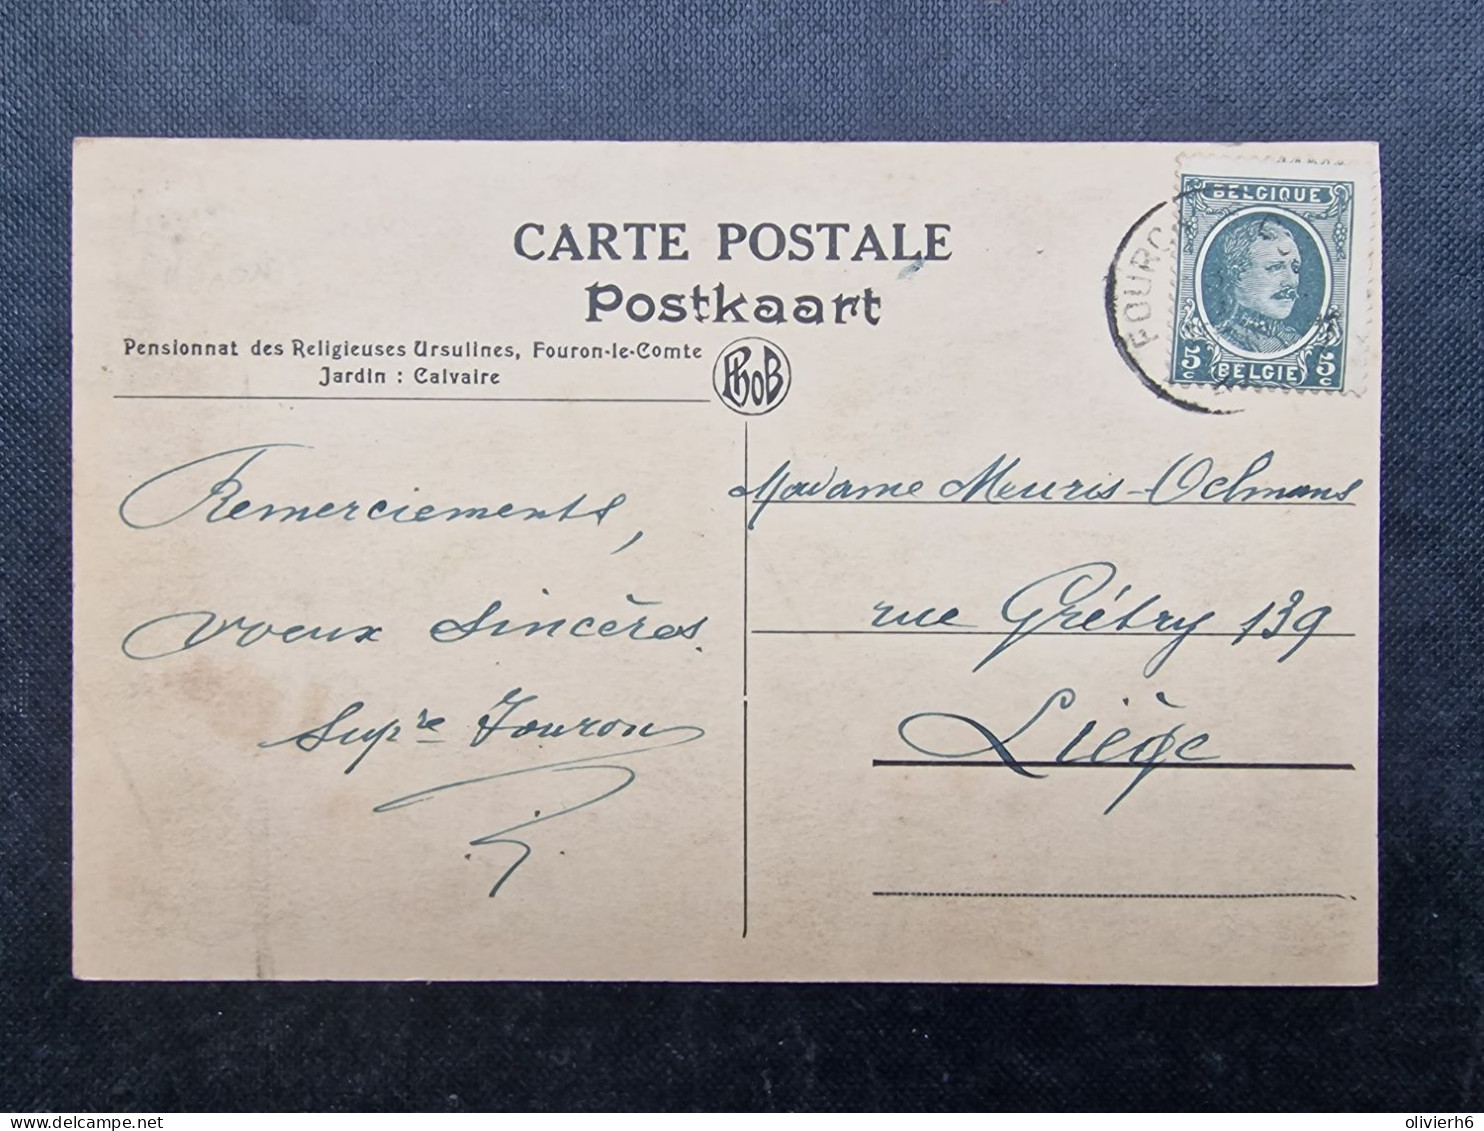 CARTE POSTALE
Postkaart
Pensionnat des Religieuses Ursulines, Fouron-le-Comte
Jardin : Calvaire
PhoB
BELGIQUE
5c BELGIE 5c
FOURON
Remerciements,
voeux sincères
Supre Fouron
Madame Meuris-Oelmans
rue Grétry 139
Liège
olivierh6